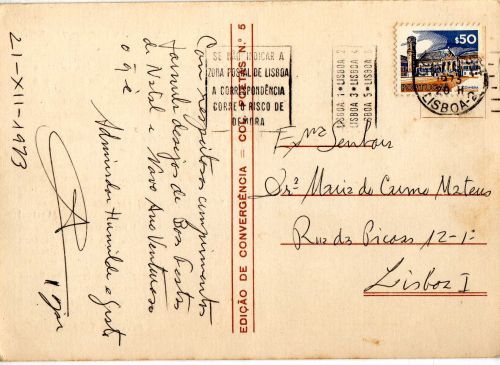 21-XII-1973
Com respeitosos cumprimentos
formulo desejos de Boas Festas
de Natal e Novo Ano Venturoso
o q é
Admirador Humilde e Grato
EDIÇÃO DE CONVERGÊNCIA = COL. POSTAIS N.º 5
SE NÃO INDICAR A
ZONA POSTAL DE LISBOA
A CORRESPONDÊNCIA
CORRE O RISCO DE
DEMORA
LISBOA 1 • LISBOA 2
LISBOA 3 • LISBOA 4
LISBOA 5 • LISBOA
$50
1973
20 H
LISBOA-2
Exma Senhora
Dr.ª Maria do Carmo Mateus
Rua da Picoas 12-1º
Lisboa I